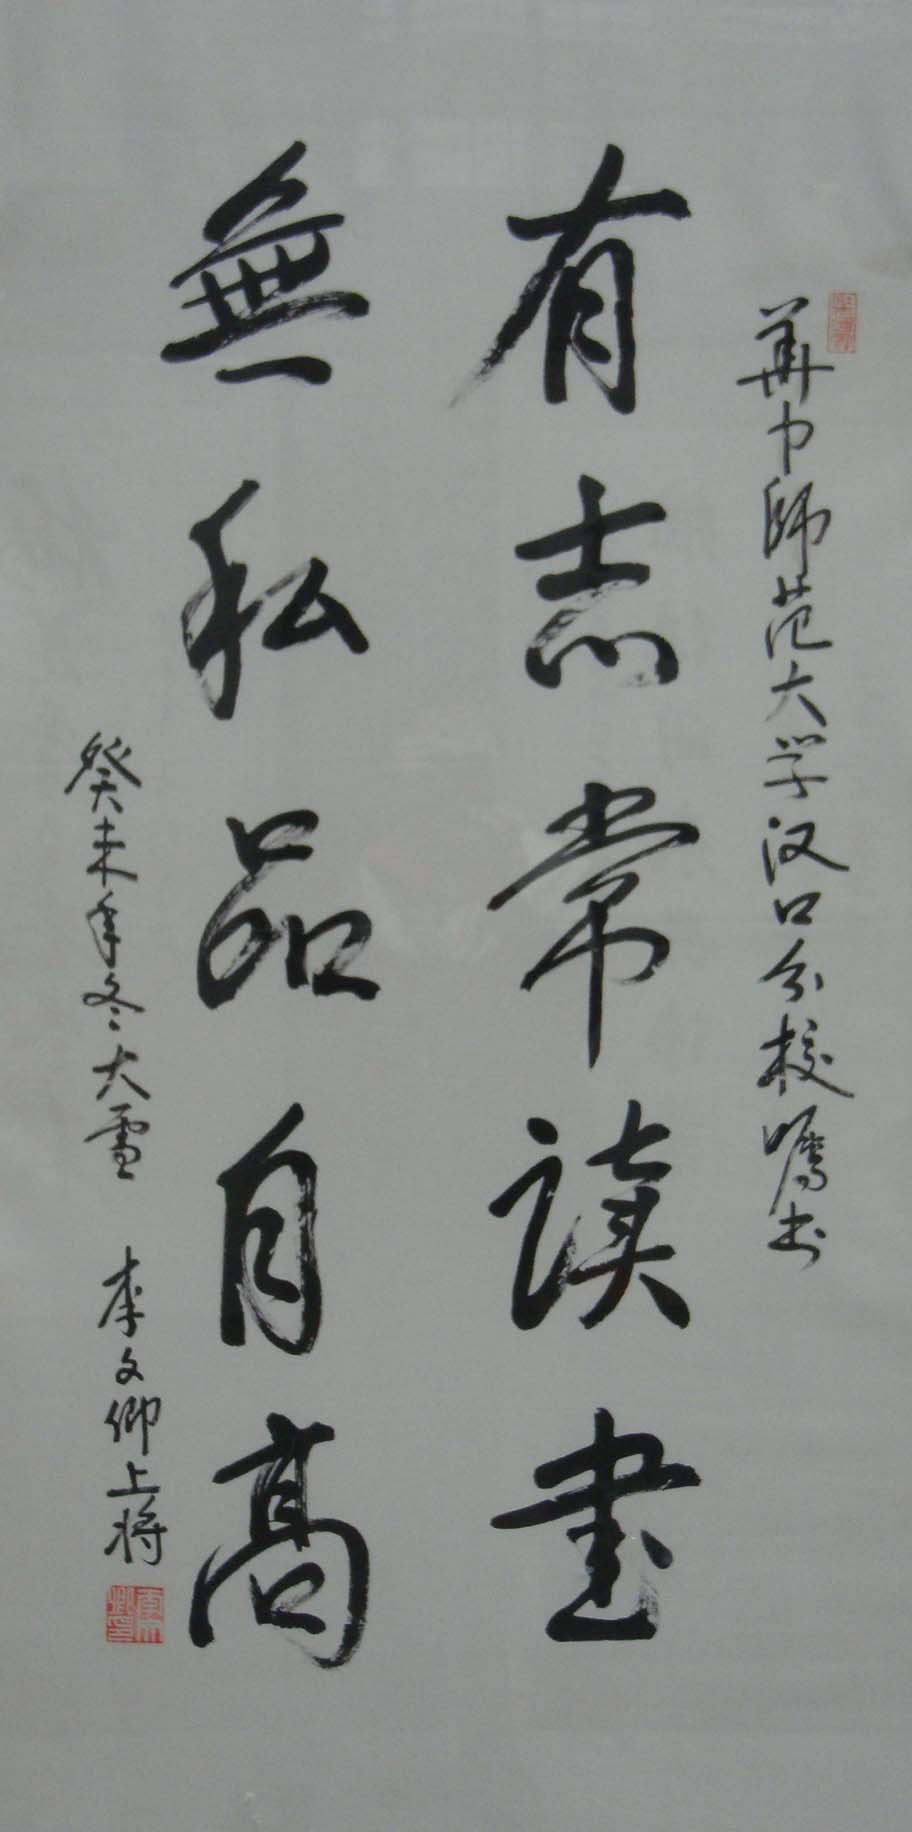 華中師范大学汉口分校嘱书
有志常读書
無私品自高
癸未年冬大雪 李文卿上将